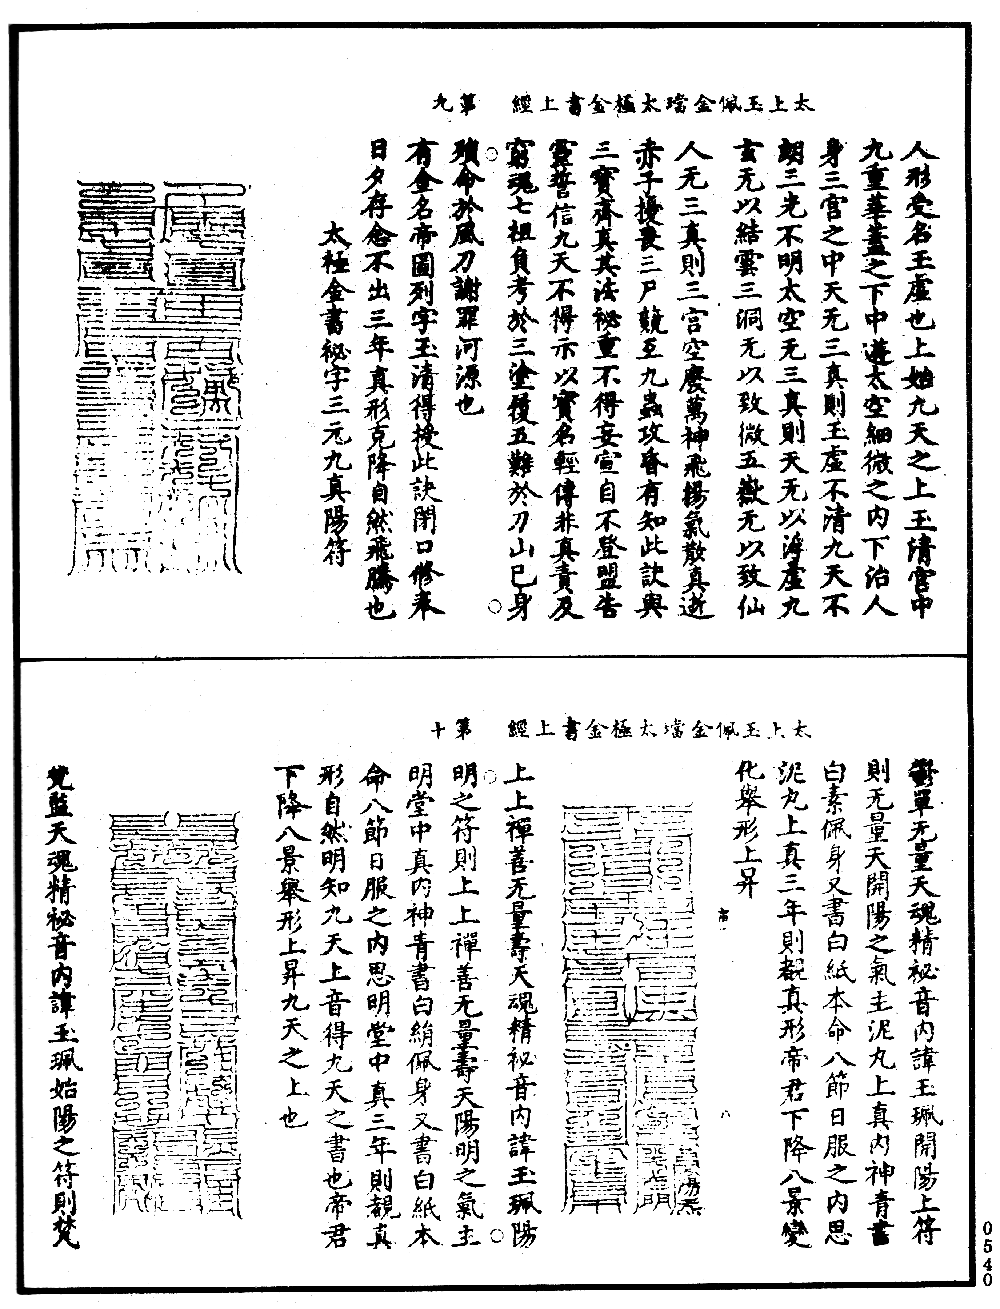 太上玉佩金璫太極金書上經　第九
人形受名玉虛也上始九天之上玉清宮中
九重華蓋之下中遊太空細微之內下治人
身三宮之中天无三真則玉虛不清九天不
朗三光不明太空无三真則天无以浮虛九
玄无以結雲三洞无以致微五嶽无以致仙
人无三真則三宮空廢萬神飛揚氣散真逝
赤子擾喪三尸競互九蟲攻昏有知此訣與
三寶齊真其法祕重不得妄宣自不登盟告
靈誓信九天不得示以寶名輕傳非真責及
窮魂七祖負考於三塗履五難於刀山已身
殞命於風刀謝罪河源也
有金名帝圖列字玉清得授此訣閉口修奉
日夕存念不出三年真形克降自然飛騰也
太極金書祕字三元九真陽符
太上玉佩金璫太極金書上經　第十
鬱單无量天魂精祕音內諱玉珮開陽上符
則无量天開陽之氣主泥丸上真內神青書
白素佩身又書白紙本命八節日服之內思
泥丸上真三年則覩真形帝君下降八景變
化舉形上昇
上上禪善无量壽天魂精祕音內諱玉珮陽
明之符則上上禪善无量壽天陽明之氣主
明堂中真內神青書白絹佩身又書白紙本
命八節日服之內思明堂中真三年則覩真
形自然明知九天上音得九天之書也帝君
下降八景舉形上昇九天之上也
梵藍天魂精祕音內諱玉珮始陽之符則梵
0540